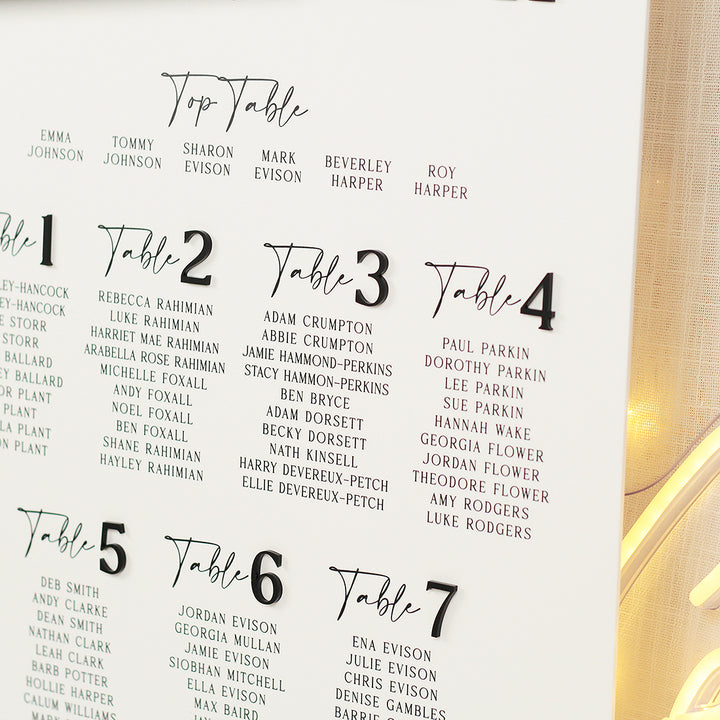 Top Table
EMMA JOHNSON
TOMMY JOHNSON
SHARON EVISON
MARK EVISON
BEVERLEY HARPER
ROY HARPER
ble 1
LEY-HANCOCK
EY-HANCOCK
E STORR
STORR
BALLARD
EY BALLARD
OR PLANT
PLANT
LA PLANT
ON PLANT
Table 2
REBECCA RAHIMIAN
LUKE RAHIMIAN
HARRIET MAE RAHIMIAN
ARABELLA ROSE RAHIMIAN
MICHELLE FOXALL
ANDY FOXALL
NOEL FOXALL
BEN FOXALL
SHANE RAHIMIAN
HAYLEY RAHIMIAN
Table 3
ADAM CRUMPTON
ABBIE CRUMPTON
JAMIE HAMMOND-PERKINS
STACY HAMMON-PERKINS
BEN BRYCE
ADAM DORSETT
BECKY DORSETT
NATH KINSELL
HARRY DEVEREUX-PETCH
ELLIE DEVEREUX-PETCH
Table 4
PAUL PARKIN
DOROTHY PARKIN
LEE PARKIN
SUE PARKIN
HANNAH WAKE
GEORGIA FLOWER
JORDAN FLOWER
THEODORE FLOWER
AMY RODGERS
LUKE RODGERS
Table 5
DEB SMITH
ANDY CLARKE
DEAN SMITH
NATHAN CLARK
LEAH CLARK
BARB POTTER
HOLLIE HARPER
CALUM WILLIAMS
Table 6
JORDAN EVISON
GEORGIA MULLAN
JAMIE EVISON
SIOBHAN MITCHELL
ELLA EVISON
MAX BAIRD
Table 7
ENA EVISON
JULIE EVISON
CHRIS EVISON
DENISE GAMBLES